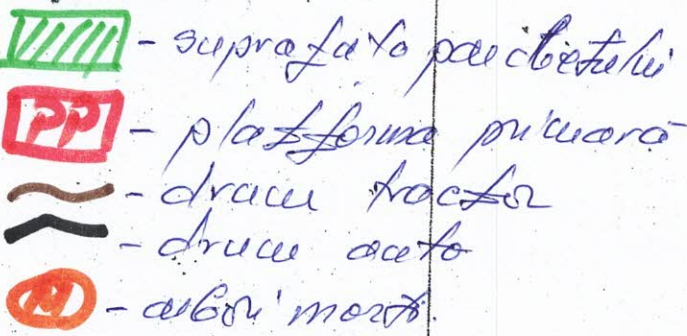 - suprafața parchetului
PP - platforma primară
- drum tractor
- drum auto
M - arbori morți.